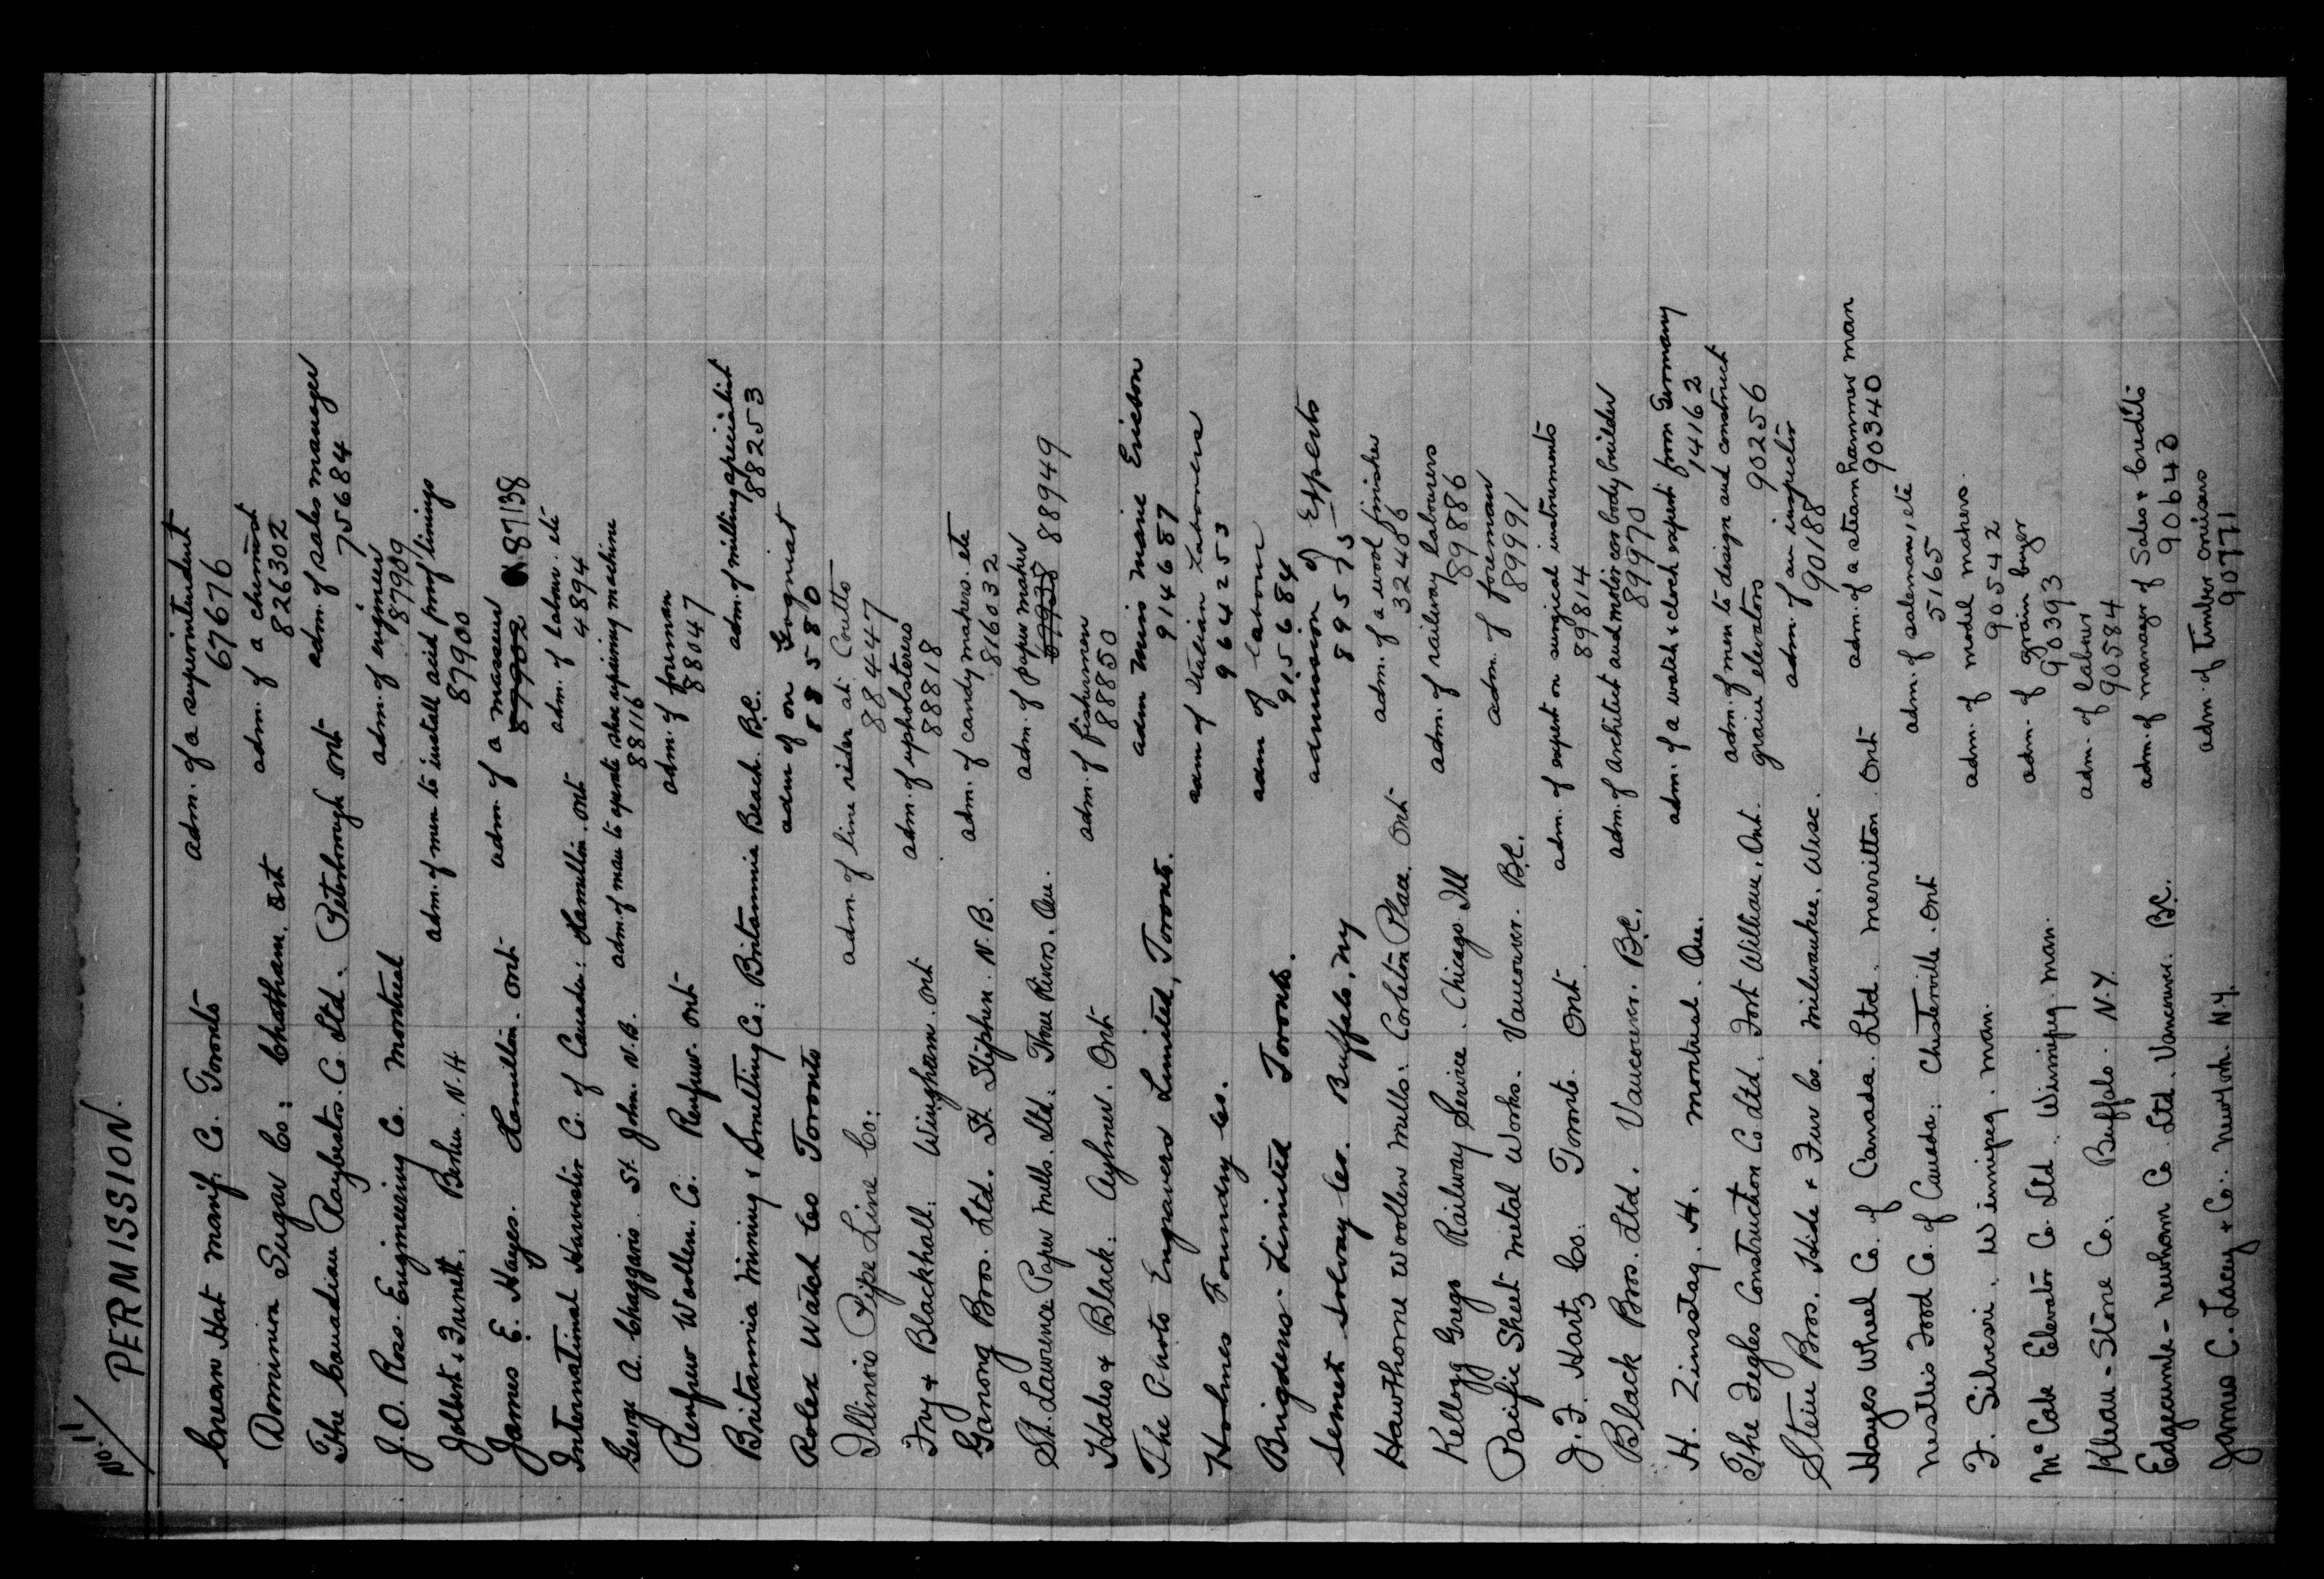 No. 11
PERMISSION.
Crean Hat Manif. Co. Toronto adm. of a superintendent
67676
Dominion Sugar Co: Chatham. Ont adm. of a chemist
826302
The Canadian Raybestos. Co. Ltd. Peterborough Ont adm. of sales manager
75684
J. O. Ross. Engineering Co. Montreal adm. of engineer
87909
Jolbert & Berlin. N.H. adm. of men to install acid proof linings
87900
James E. Hayes. Hamilton. Ont adm. of a masseur
87902 87138
International Harvester Co. of Canada: Hamilton. Ont adm. of labour. etc
4894
George A. Chaggaris. St. John. N.B. adm. of man to operate shoe repairing machine
88116
Renfrew Woollen. Co. Renfrew. Ont adm. of foreman
88047
Britannia Mining & Smelting Co: Britannia Beach. B.C. adm. of milling specialist
88253
Rolex Watch Co Toronto adm of on Gogniat
885580
Illinois Pipe Line Co: adm. of line rider at Coutts
88447
Fry & Blackhall: Wingham. Ont adm. of upholsterers
88818
Ganong Bros. Ltd. St. Stephen. N.B. adm. of candy makers. etc
816032
St. Lawrence Paper Mills. Ltd: Three Rivers. Que. adm. of paper maker
88949
Hales & Black: Aylmer. Ont adm. of fishermen
88850
The Photo Engravers Limited, Toronto. adm Miss Marie Ericson
914687
Holmes Foundry Co. adm of Italian Labourers
964253
Brigdens Limited Toronto. adm of labour
915684
Semet Solvay Co. Buffalo, NY admission of Experts
89573
Hawthorne Woollen Mills: Carleton Place. Ont adm. of a wool finisher
32486
Kellogg Gregs Railway Service. Chicago Ill adm. of railway labourers
89886
Pacific Sheet Metal Works. Vancouver. B.C. adm. of foreman
89991
J. F. Hartz Co: Toronto. Ont. adm. of expert on surgical instruments
89814
Black Bros. Ltd. Vancouver. B.C. adm. of architect and motor car body builder
89970
H. Zinsstag. H. Montreal. Que. adm. of a watch & clock expert from Germany
14162
The Fegles Construction Co. Ltd. Fort William. Ont. adm. of men to design and construct
grain elevators 90256
Stein Bros. Hide & Fur Co. Milwaukee. Wisc. adm. of an inspector
90188
Hayes Wheel Co. of Canada. Ltd. Merritton. Ont adm. of a steam hammer man
90340
Nestles Food Co. of Canada: Chesterville. Ont adm. of salesman, etc
5165
F. Silvesri. Winnipeg. Man. adm. of model makers.
90542
McCabe Elevator Co. Ltd. Winnipeg. Man. adm. of grain buyer
90393
Klean-Stone Co: Buffalo. N.Y. adm. of labour
90584
Edgecumbe-Newham Co. Ltd. Vancouver. B.C. adm. of manager of Sales & Credits
90640
James C. Lacey & Co: New York. N.Y. adm. of timber cruisers
90771